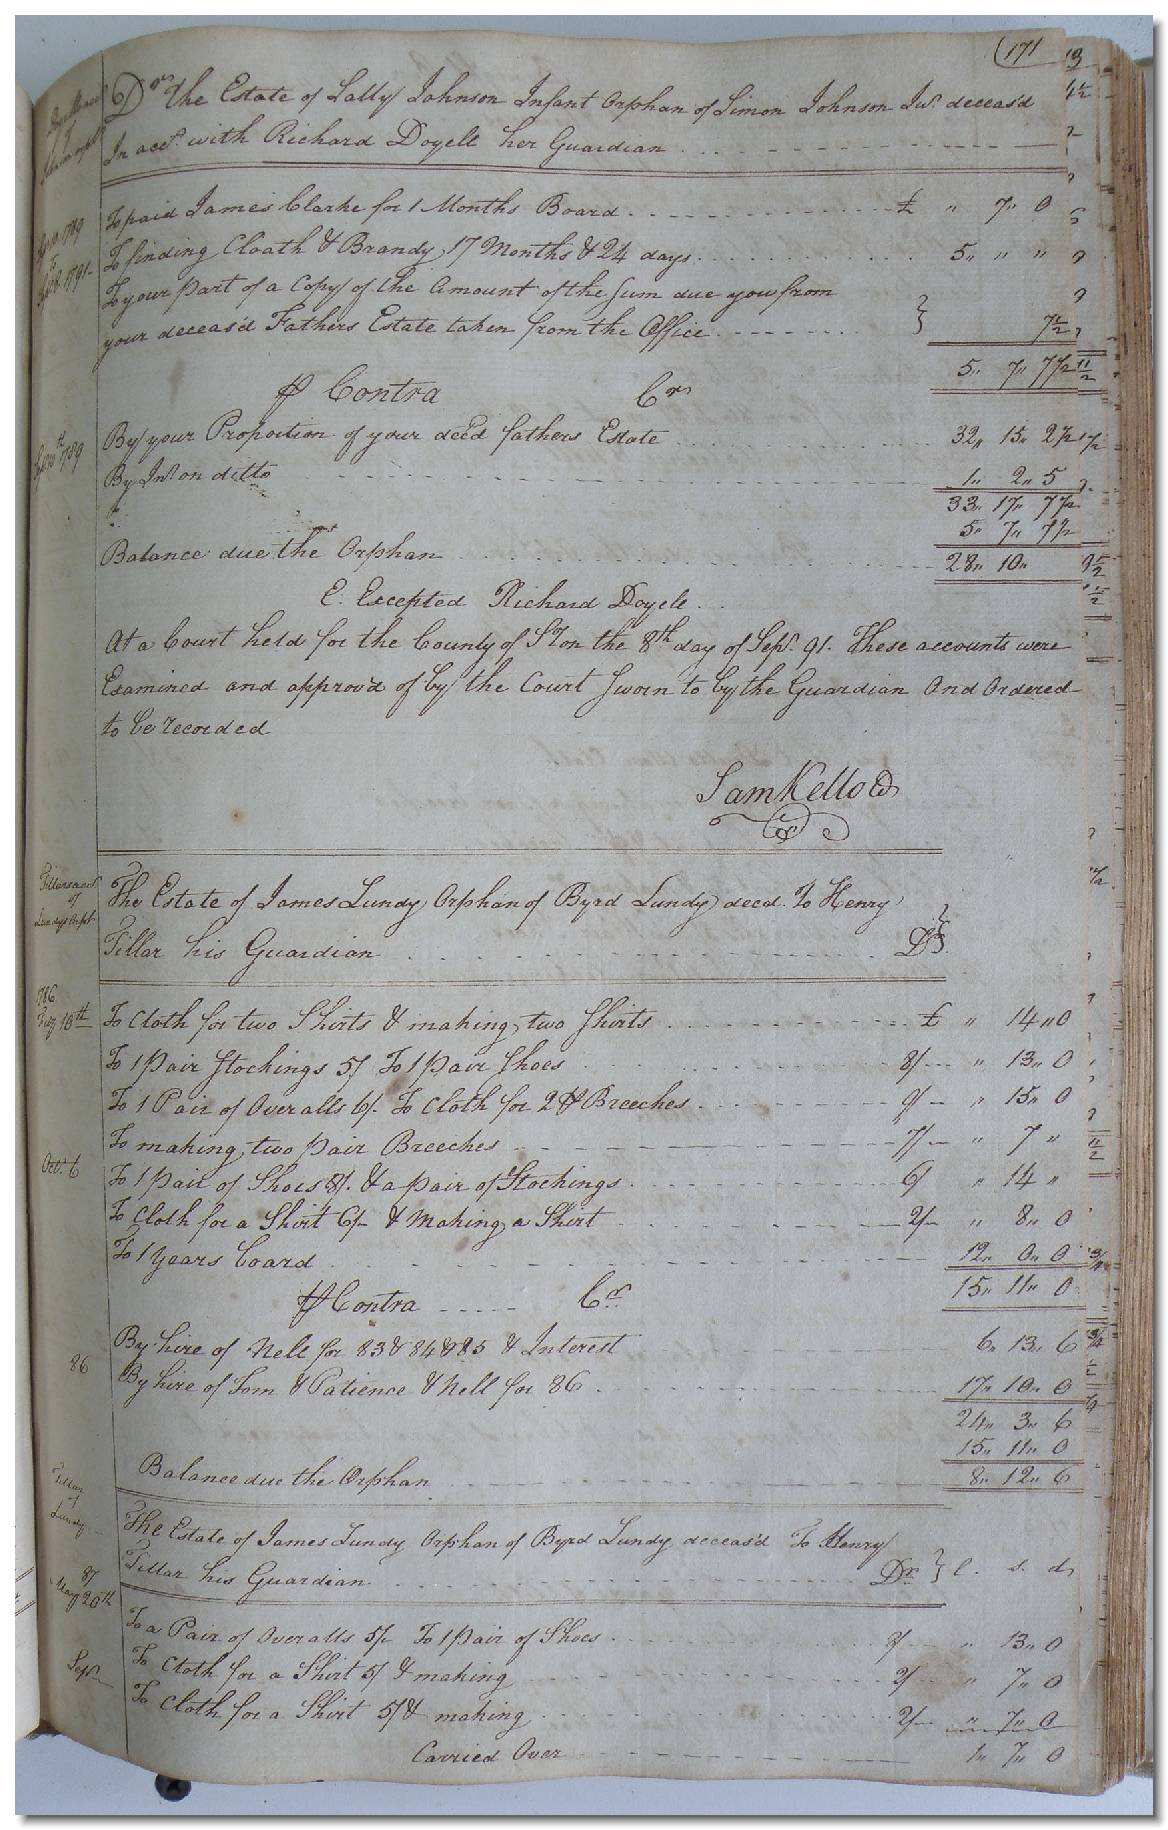 (171
Dr. The Estate of Sally Johnson Infant Orphan of Simon Johnson Junr. deceas'd
In acct. with Richard Doyell her Guardian
To paid James Clarke for 1 Months Board £ " 7" 0
1789
To finding Cloath & Brandy 17 Months & 24 days 5" " "
1791
To your part of a Copy of the Amount of the sum due you from
your deceas'd Fathers Estate taken from the Office } 7 1/2
5" 7" 7 1/2
⅌ Contra Cr.
1789
By your Proportion of your decd fathers Estate 32" 15" 2 1/2
By Int. on ditto 1" 2" 5
33" 17" 7 1/2
5" 7" 7 1/2
Balance due the Orphan 28" 10"
E. Excepted Richard Doyele
At a Court held for the County of Sn. on the 8th day of Sepr. 91. These accounts were
Examined and approv'd of by the Court sworn to by the Guardian And Ordered
to be recorded
Sam Kello
Tillars acct
of
Lundys Orpt.
The Estate of James Lundy Orphan of Byrd Lundy decd. To Henry
Tillar his Guardian Dr. }
10th
To Cloth for two Shirts & making two Shirts £ " 14" 0
To 1 pair Stockings 5/ To 1 pair Shoes 8/ " 13" 0
To 1 Pair of Overalls 6/. To Cloth for 2 ⅌ Breeches 9/ " 15" 0
To making two pair Breeches 7/ " 7 "
Octr. 6
To 1 pair of Shoes 8/. & a pair of Stockings 6/ " 14 "
To Cloth for a Shirt 6/ & Making a Shirt 2/ " 8" 0
To 1 Years board 12" 0" 0
15" 11" 0
⅌ Contra Cr.
By hire of Nell for 83 & 84 & 85 & Interest 6" 13" 6
86
By hire of Tom & Patience & Nell for 86 17" 10" 0
24" 3" 6
15" 11" 0
Balance due the Orphan 8" 12" 6
Tillar
of
Lundy
The Estate of James Lundy Orphan of Byrd Lundy deceas'd To Henry
Tillar his Guardian Dr. } l. s. d.
87
May 20th
To a Pair of Overalls 5/ To 1 pair of Shoes 8/ " 13" 0
To Cloth for a Shirt 5/ & making 2/ " 7" 0
Sepr.
To Cloth for a Shirt 5/ & making 2/ " 7" 0
Carried Over 1" 7" 0